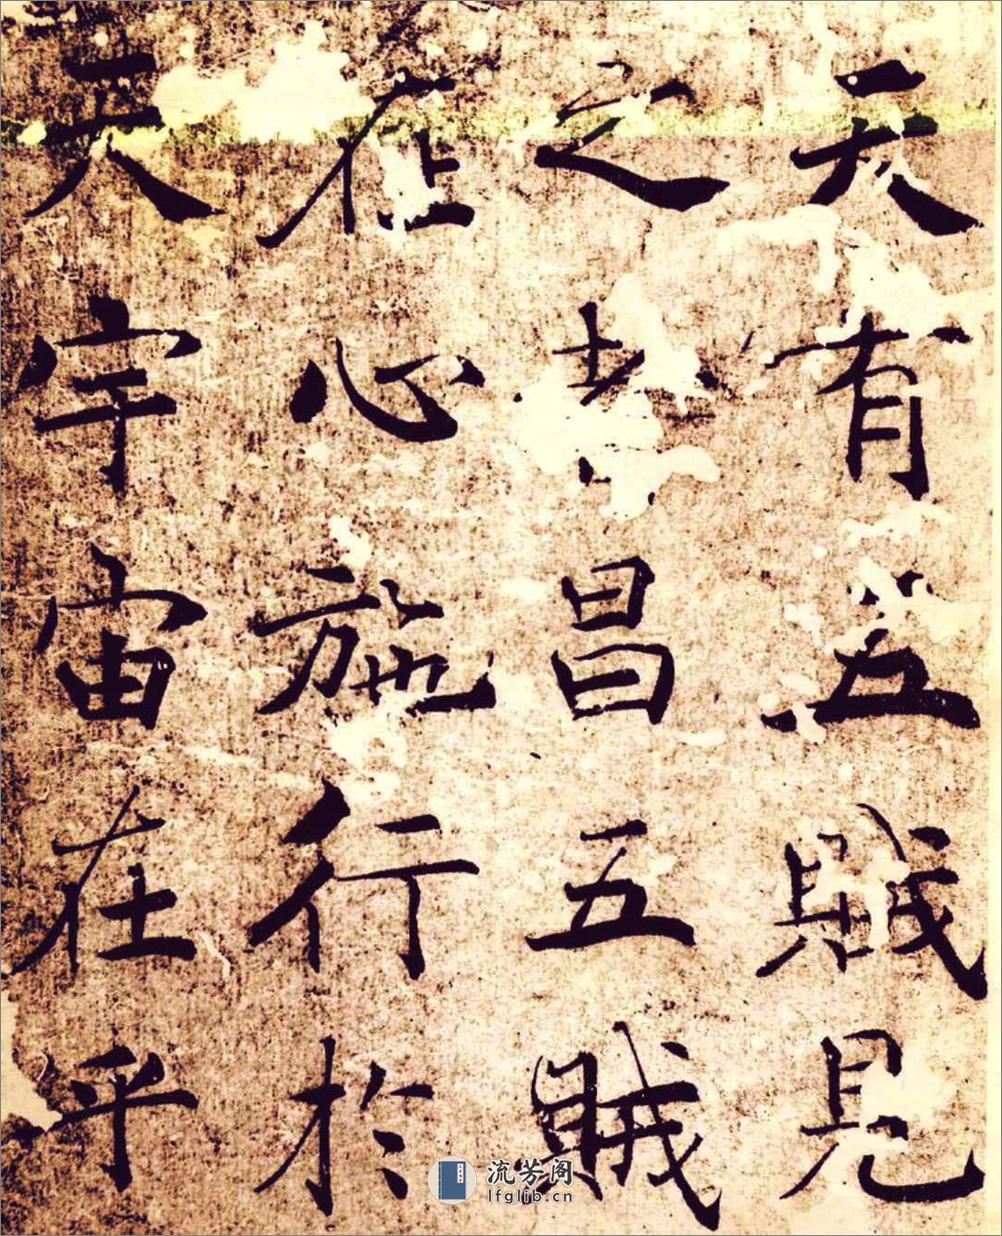 天有五賊見
之者昌五賊
在心施行於
天宇宙在乎
流芳阁
lfglib.cn